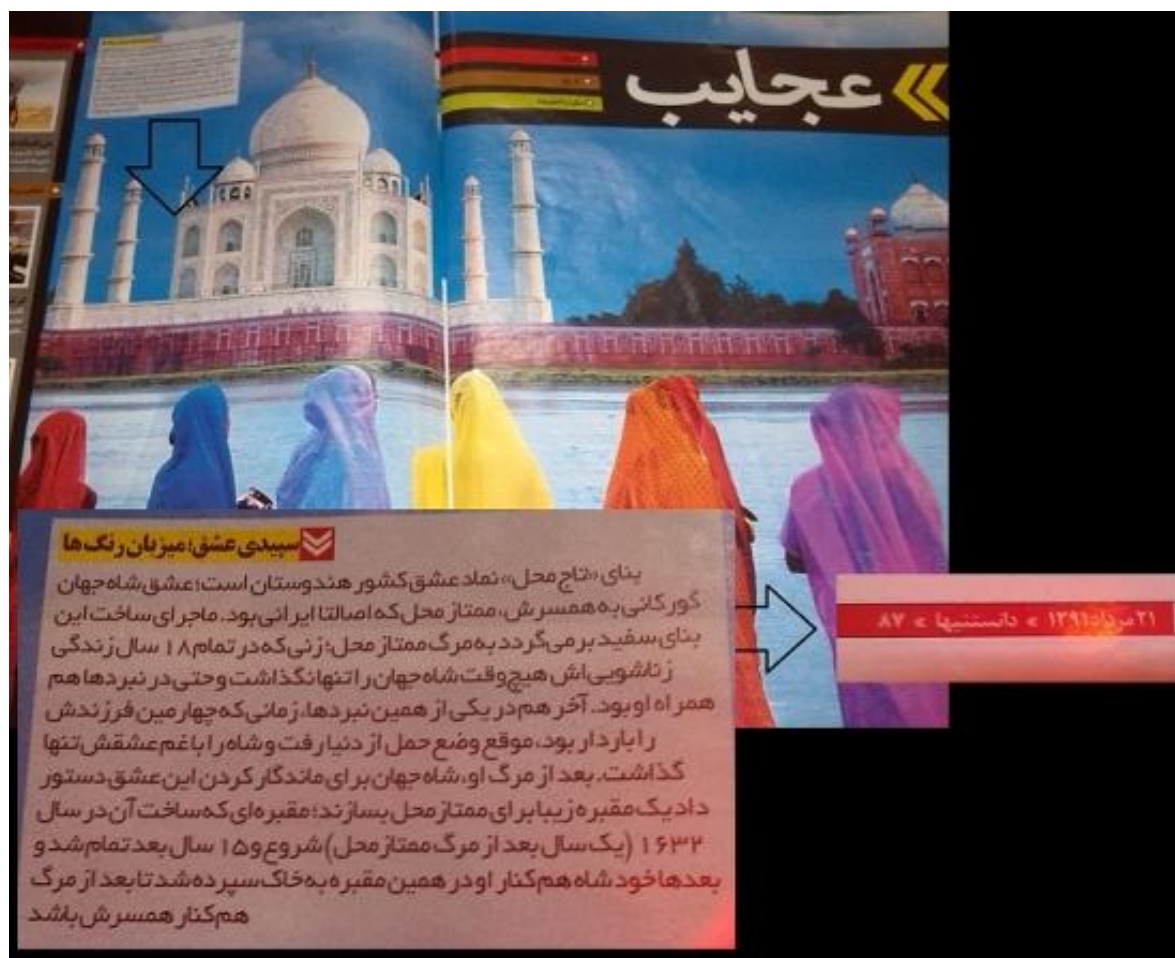 عجایب
سپیدی عشق؛ میزبان رنگ‌ها
بنای «تاج محل» نماد عشق کشور هندوستان است؛ عشق شاه جهان
گورکانی به همسرش، ممتاز محل که اصالتا ایرانی بود. ماجرای ساخت این
بنای سفید برمی‌گردد به مرگ ممتاز محل؛ زنی که در تمام ۱۸ سال زندگی
زناشویی‌اش هیچ‌وقت شاه جهان را تنها نگذاشت و حتی در نبردها هم
همراه او بود. آخر هم در یکی از همین نبردها، زمانی که چهارمین فرزندش
را باردار بود، موقع وضع حمل از دنیا رفت و شاه را با غم عشقش تنها
گذاشت. بعد از مرگ او، شاه جهان برای ماندگار کردن این عشق دستور
داد یک مقبره زیبا برای ممتاز محل بسازند؛ مقبره‌ای که ساخت آن در سال
۱۶۳۲ (یک سال بعد از مرگ ممتاز محل) شروع و ۱۵ سال بعد تمام شد و
بعدها خود شاه هم کنار او در همین مقبره به خاک سپرده شد تا بعد از مرگ
هم کنار همسرش باشد
۲۱ مرداد ۱۳۹۱ » دانستنیها » ۸۷